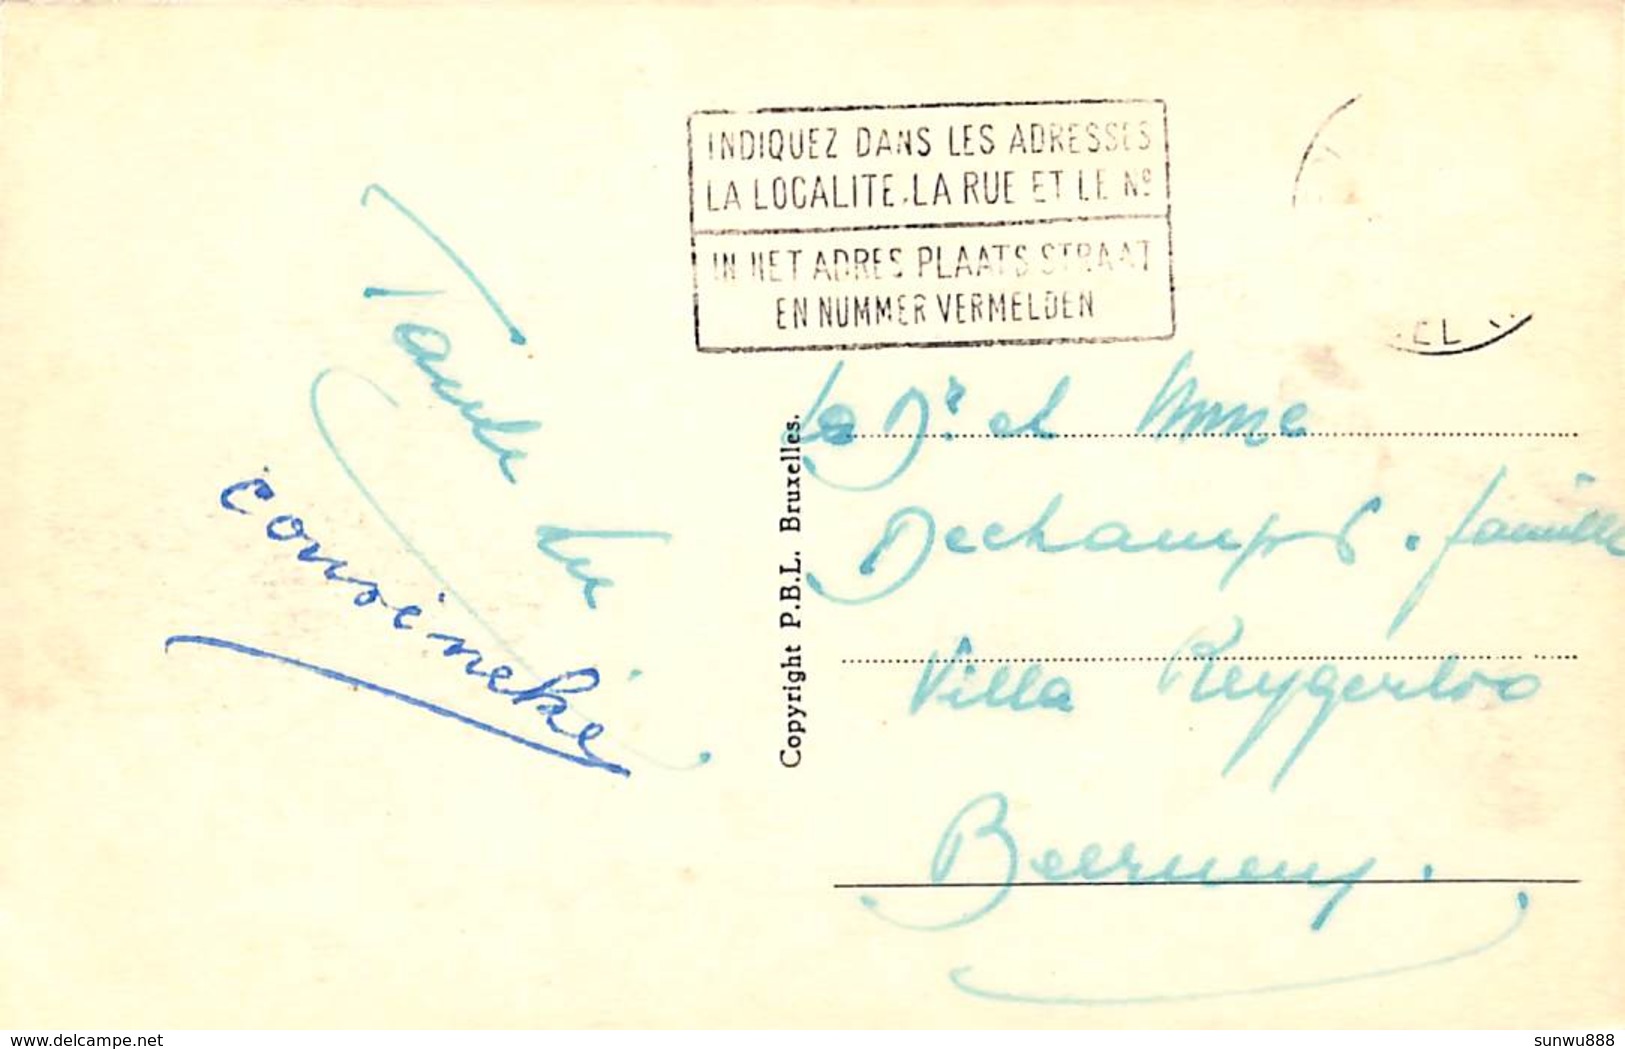 INDIQUEZ DANS LES ADRESSES
LA LOCALITE, LA RUE ET LE No
IN HET ADRES PLAATS STRAAT
EN NUMMER VERMELDEN
EL
Copyright P.B.L. Bruxelles.
Dr et Mme
Dechamps. famille
Villa Reygerloo
Beernem.
cousineke
www.delcampe.net
sunwu888